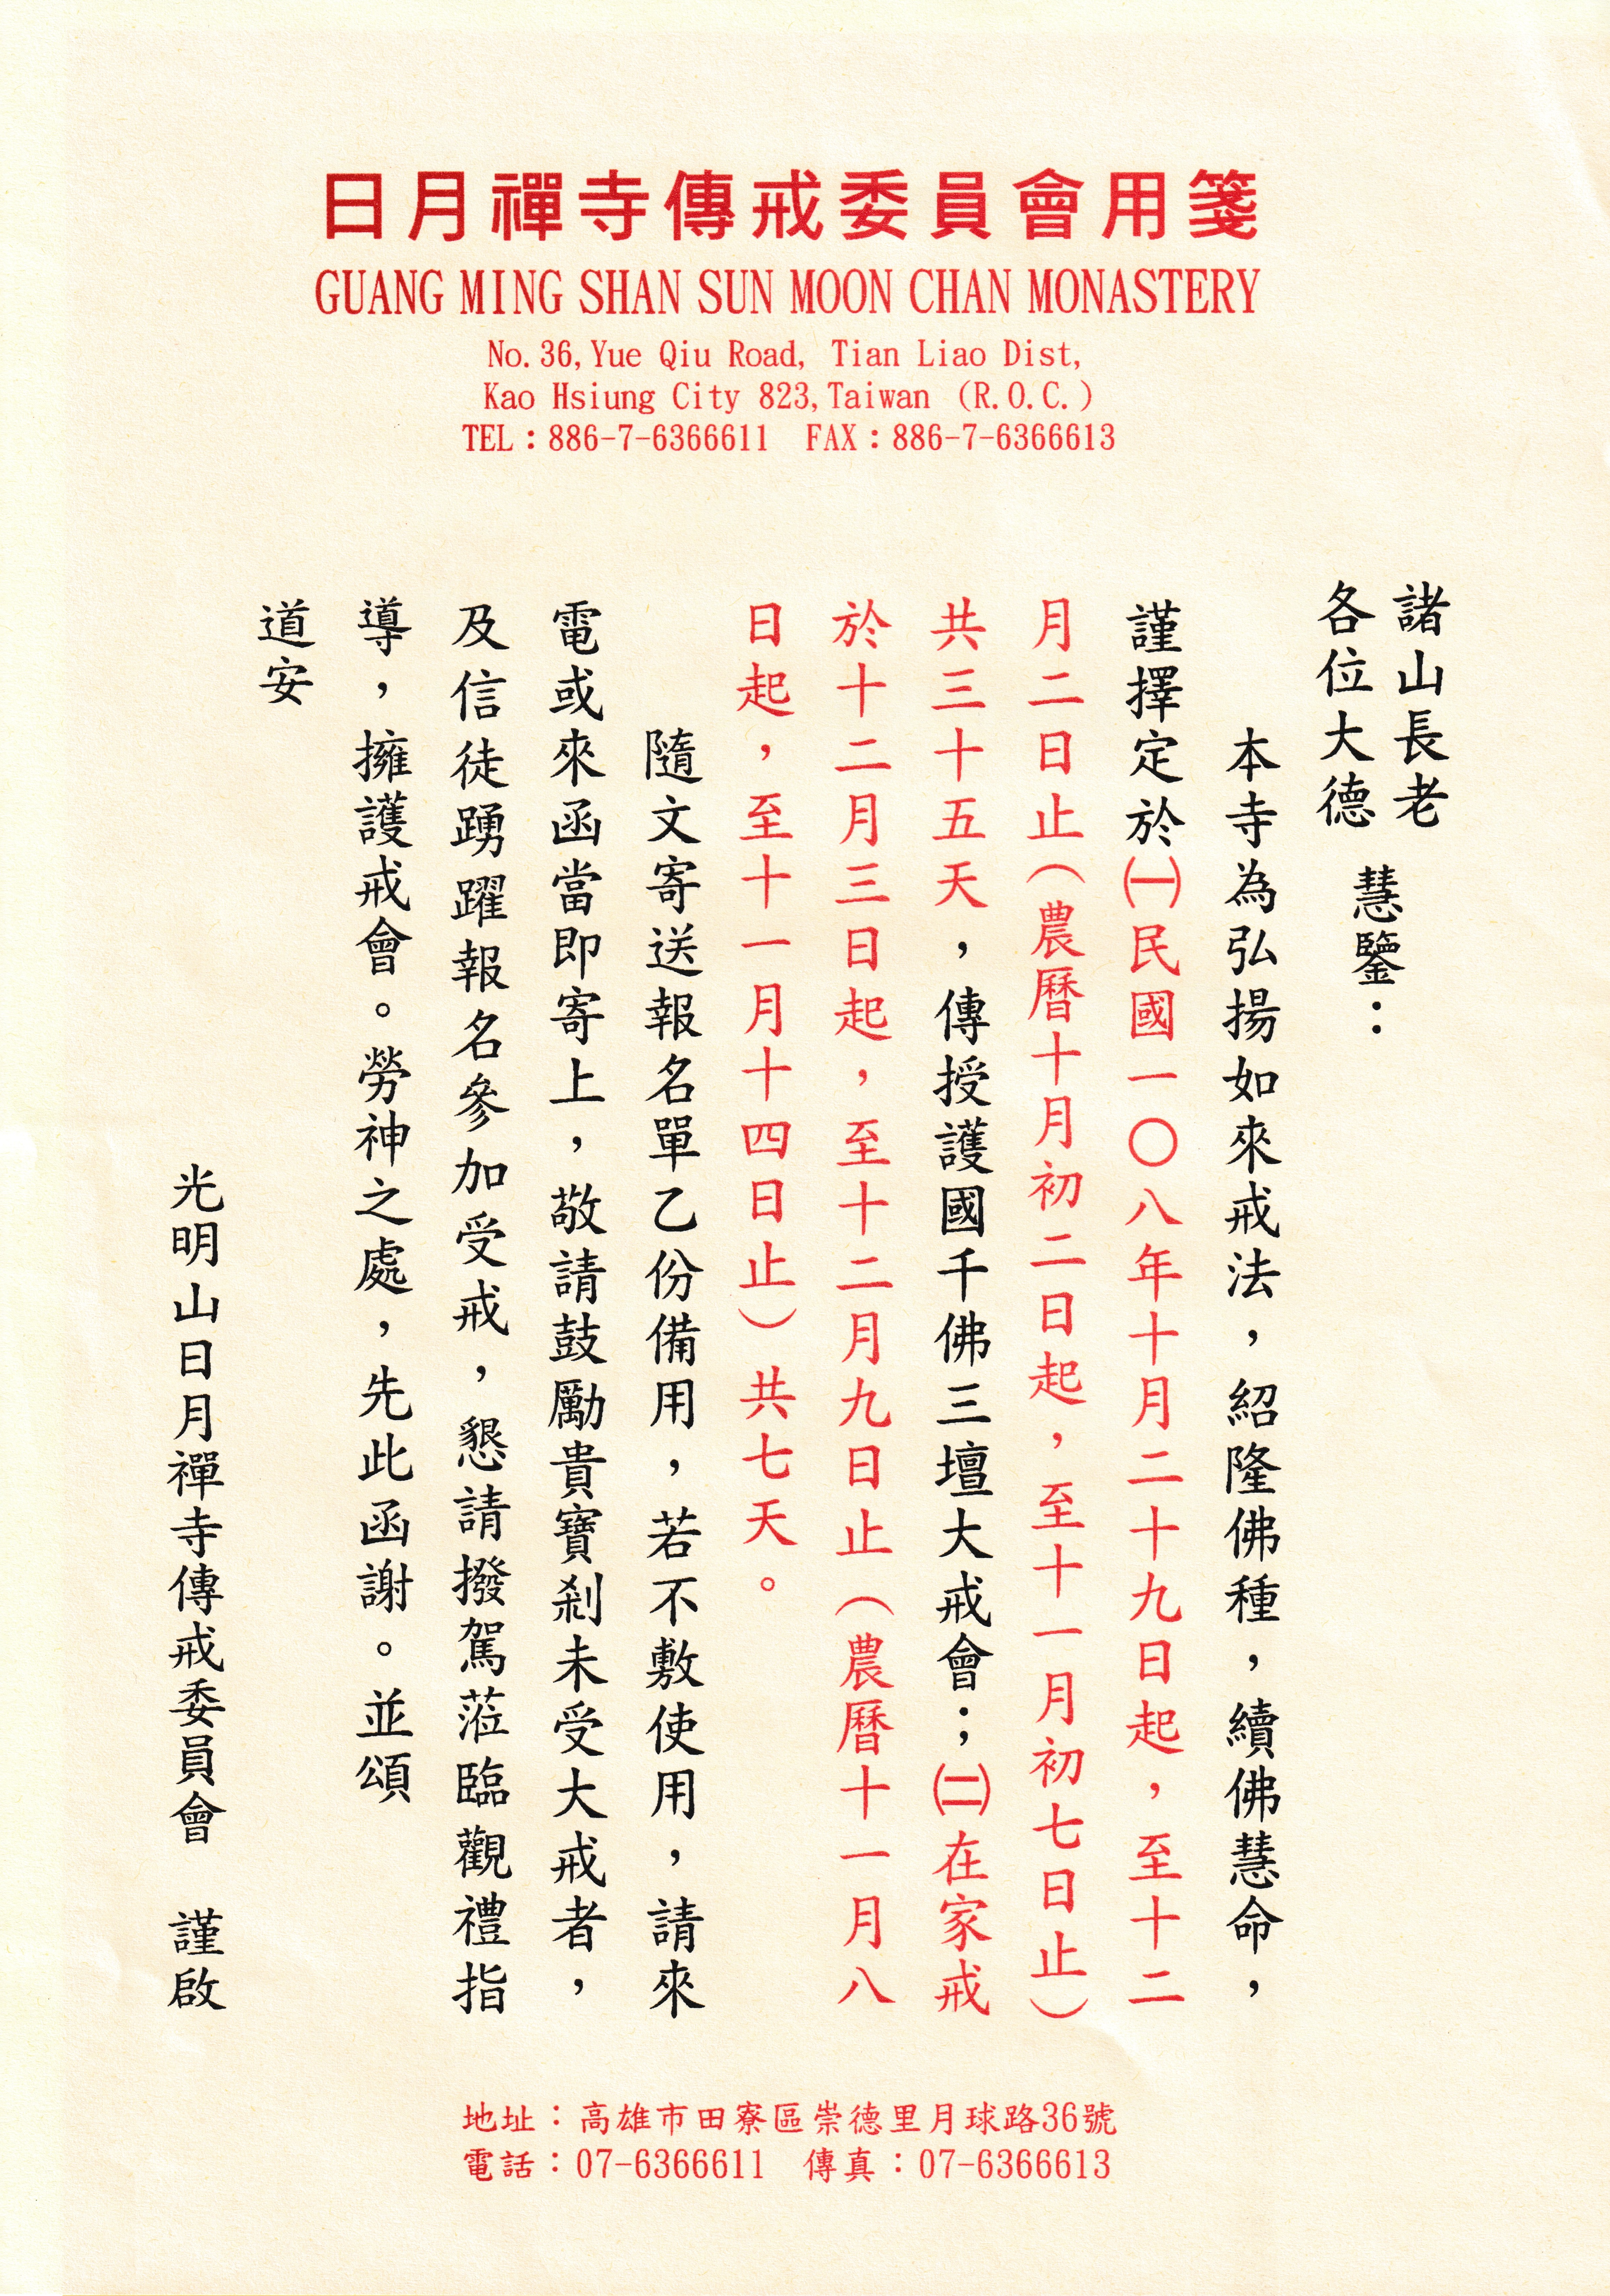 日月禪寺傳戒委員會用箋
GUANG MING SHAN SUN MOON CHAN MONASTERY
No.36,Yue Qiu Road, Tian Liao Dist,
Kao Hsiung City 823,Taiwan (R.O.C.)
TEL：886-7-6366611 FAX：886-7-6366613
諸山長老
各位大德
慧鑒：
本寺為弘揚如來戒法，紹隆佛種，續佛慧命，
謹擇定於㈠民國一〇八年十月二十九日起，至十二
月二日止（農曆十月初二日起，至十一月初七日止）
共三十五天，傳授護國千佛三壇大戒會；㈡在家戒
於十二月三日起，至十二月九日止（農曆十一月八
日起，至十一月十四日止）共七天。
隨文寄送報名單乙份備用，若不敷使用，請來
電或來函當即寄上，敬請鼓勵貴寶剎未受大戒者，
及信徒踴躍報名參加受戒，懇請撥駕蒞臨觀禮指
導，擁護戒會。勞神之處，先此函謝。並頌
道安
光明山日月禪寺傳戒委員會 謹啟
地址：高雄市田寮區崇德里月球路36號
電話：07-6366611 傳真：07-6366613